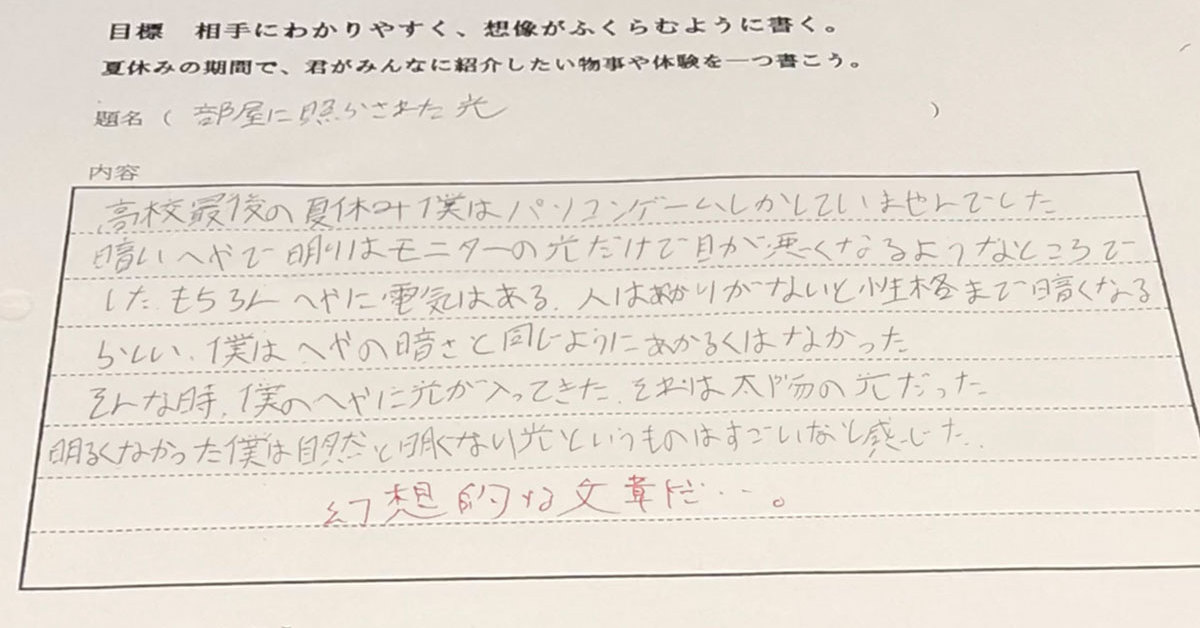 目標　相手にわかりやすく、想像がふくらむように書く。
夏休みの期間で、君がみんなに紹介したい物事や体験を一つ書こう。
題名（ 部屋に照らされた光 ）
内容
高校最後の夏休み僕はパソコンゲームしかしていませんでした
暗いへやで明りはモニターの光だけで目が悪くなるようなところで
した.もちろんへやに電気はある.人はあかりがないと性格まで暗くなる
らしい.僕はへやの暗さと同じようにあかるくはなかった
そんな時.僕のへやに光が入ってきた.それは太陽の光だった
明るくなかった僕は自然と明くなり光というものはすごいなと感じた.
幻想的な文章だ…。